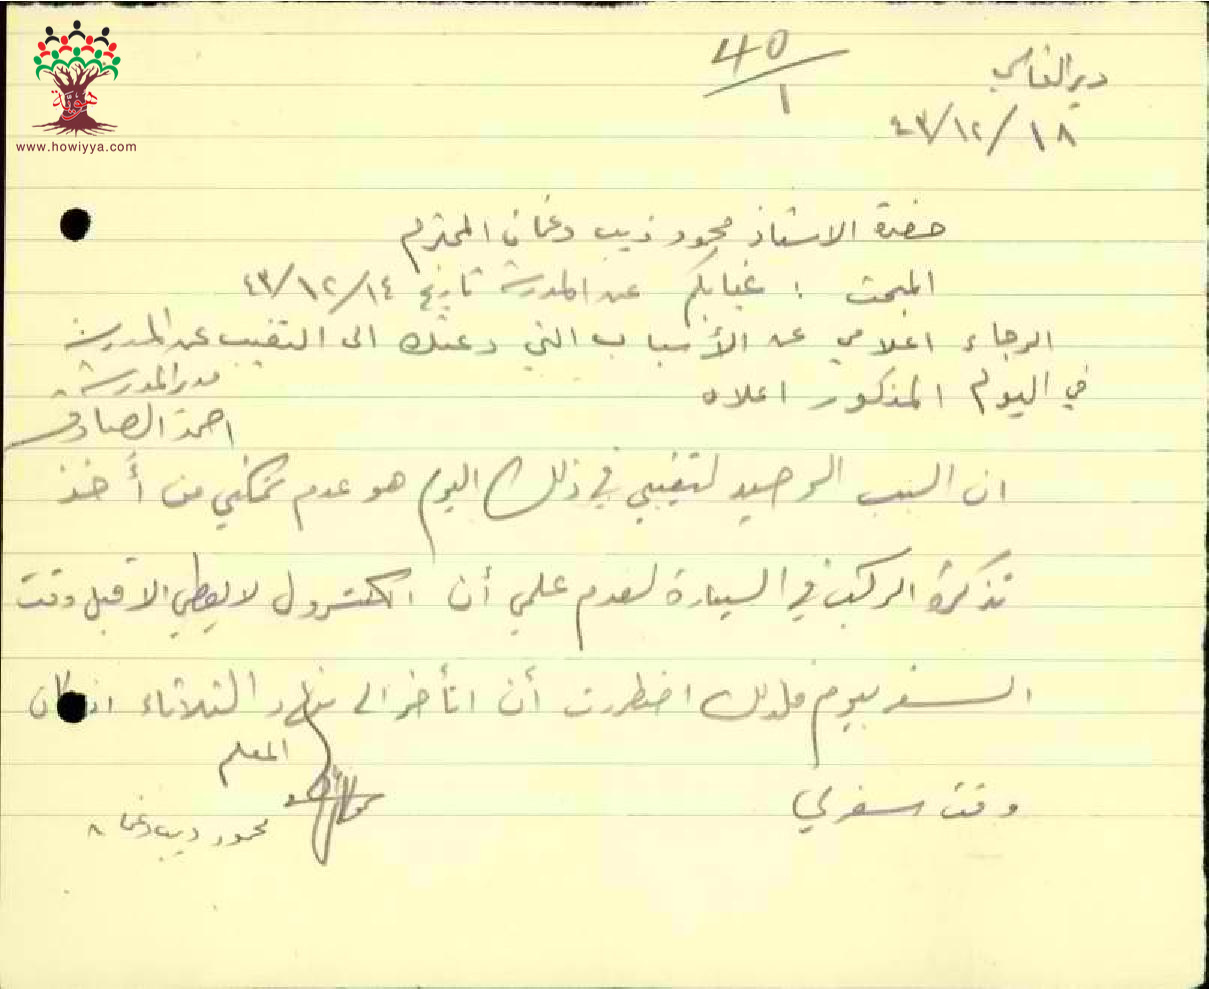 هوية
www.howiyya.com
40/1
دير القاسي
١٨/١٢/٤٣
حضرة الاستاذ محمود ذيب دغمان المحترم
المبحث : غيابكم عن المدرسة تاريخ ١٤/١٢/٤٣
الرجاء اعلامي عن الأسباب التي دعتك الى التغيب عن المدرسة
في اليوم المذكور اعلاه
مدير المدرسة
احمد الصادق
ان السبب الوحيد لتغيبي في ذلك اليوم هو عدم تمكني من أخذ
تذكرة الركب في السيارة لعدم علمي أن الكنترول لا يعطي الا قبل وقت
السفر بيوم فلذلك اضطررت أن اتأخر الى نهار الثلاثاء اذ كان
وقت سفري
المعلم
محمود ذيب دغمان